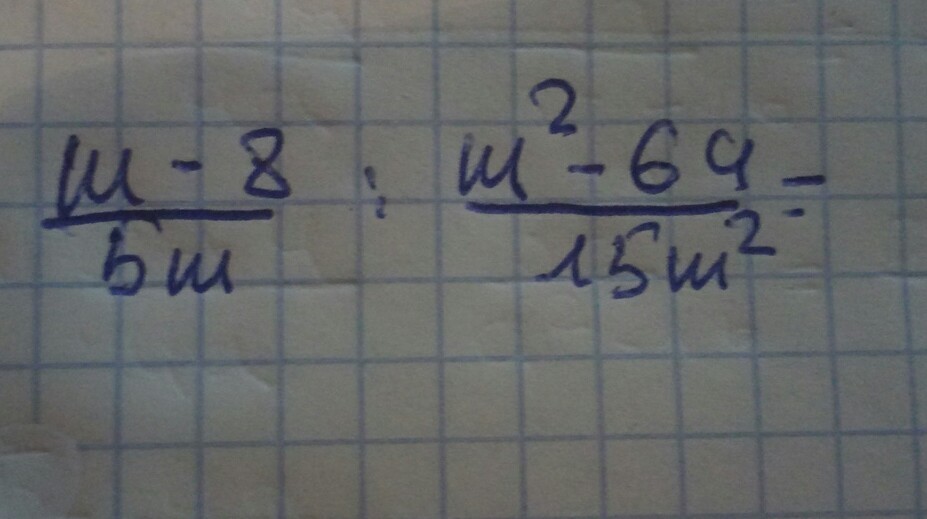 m - 8 / 5m : m² - 64 / 15m² =